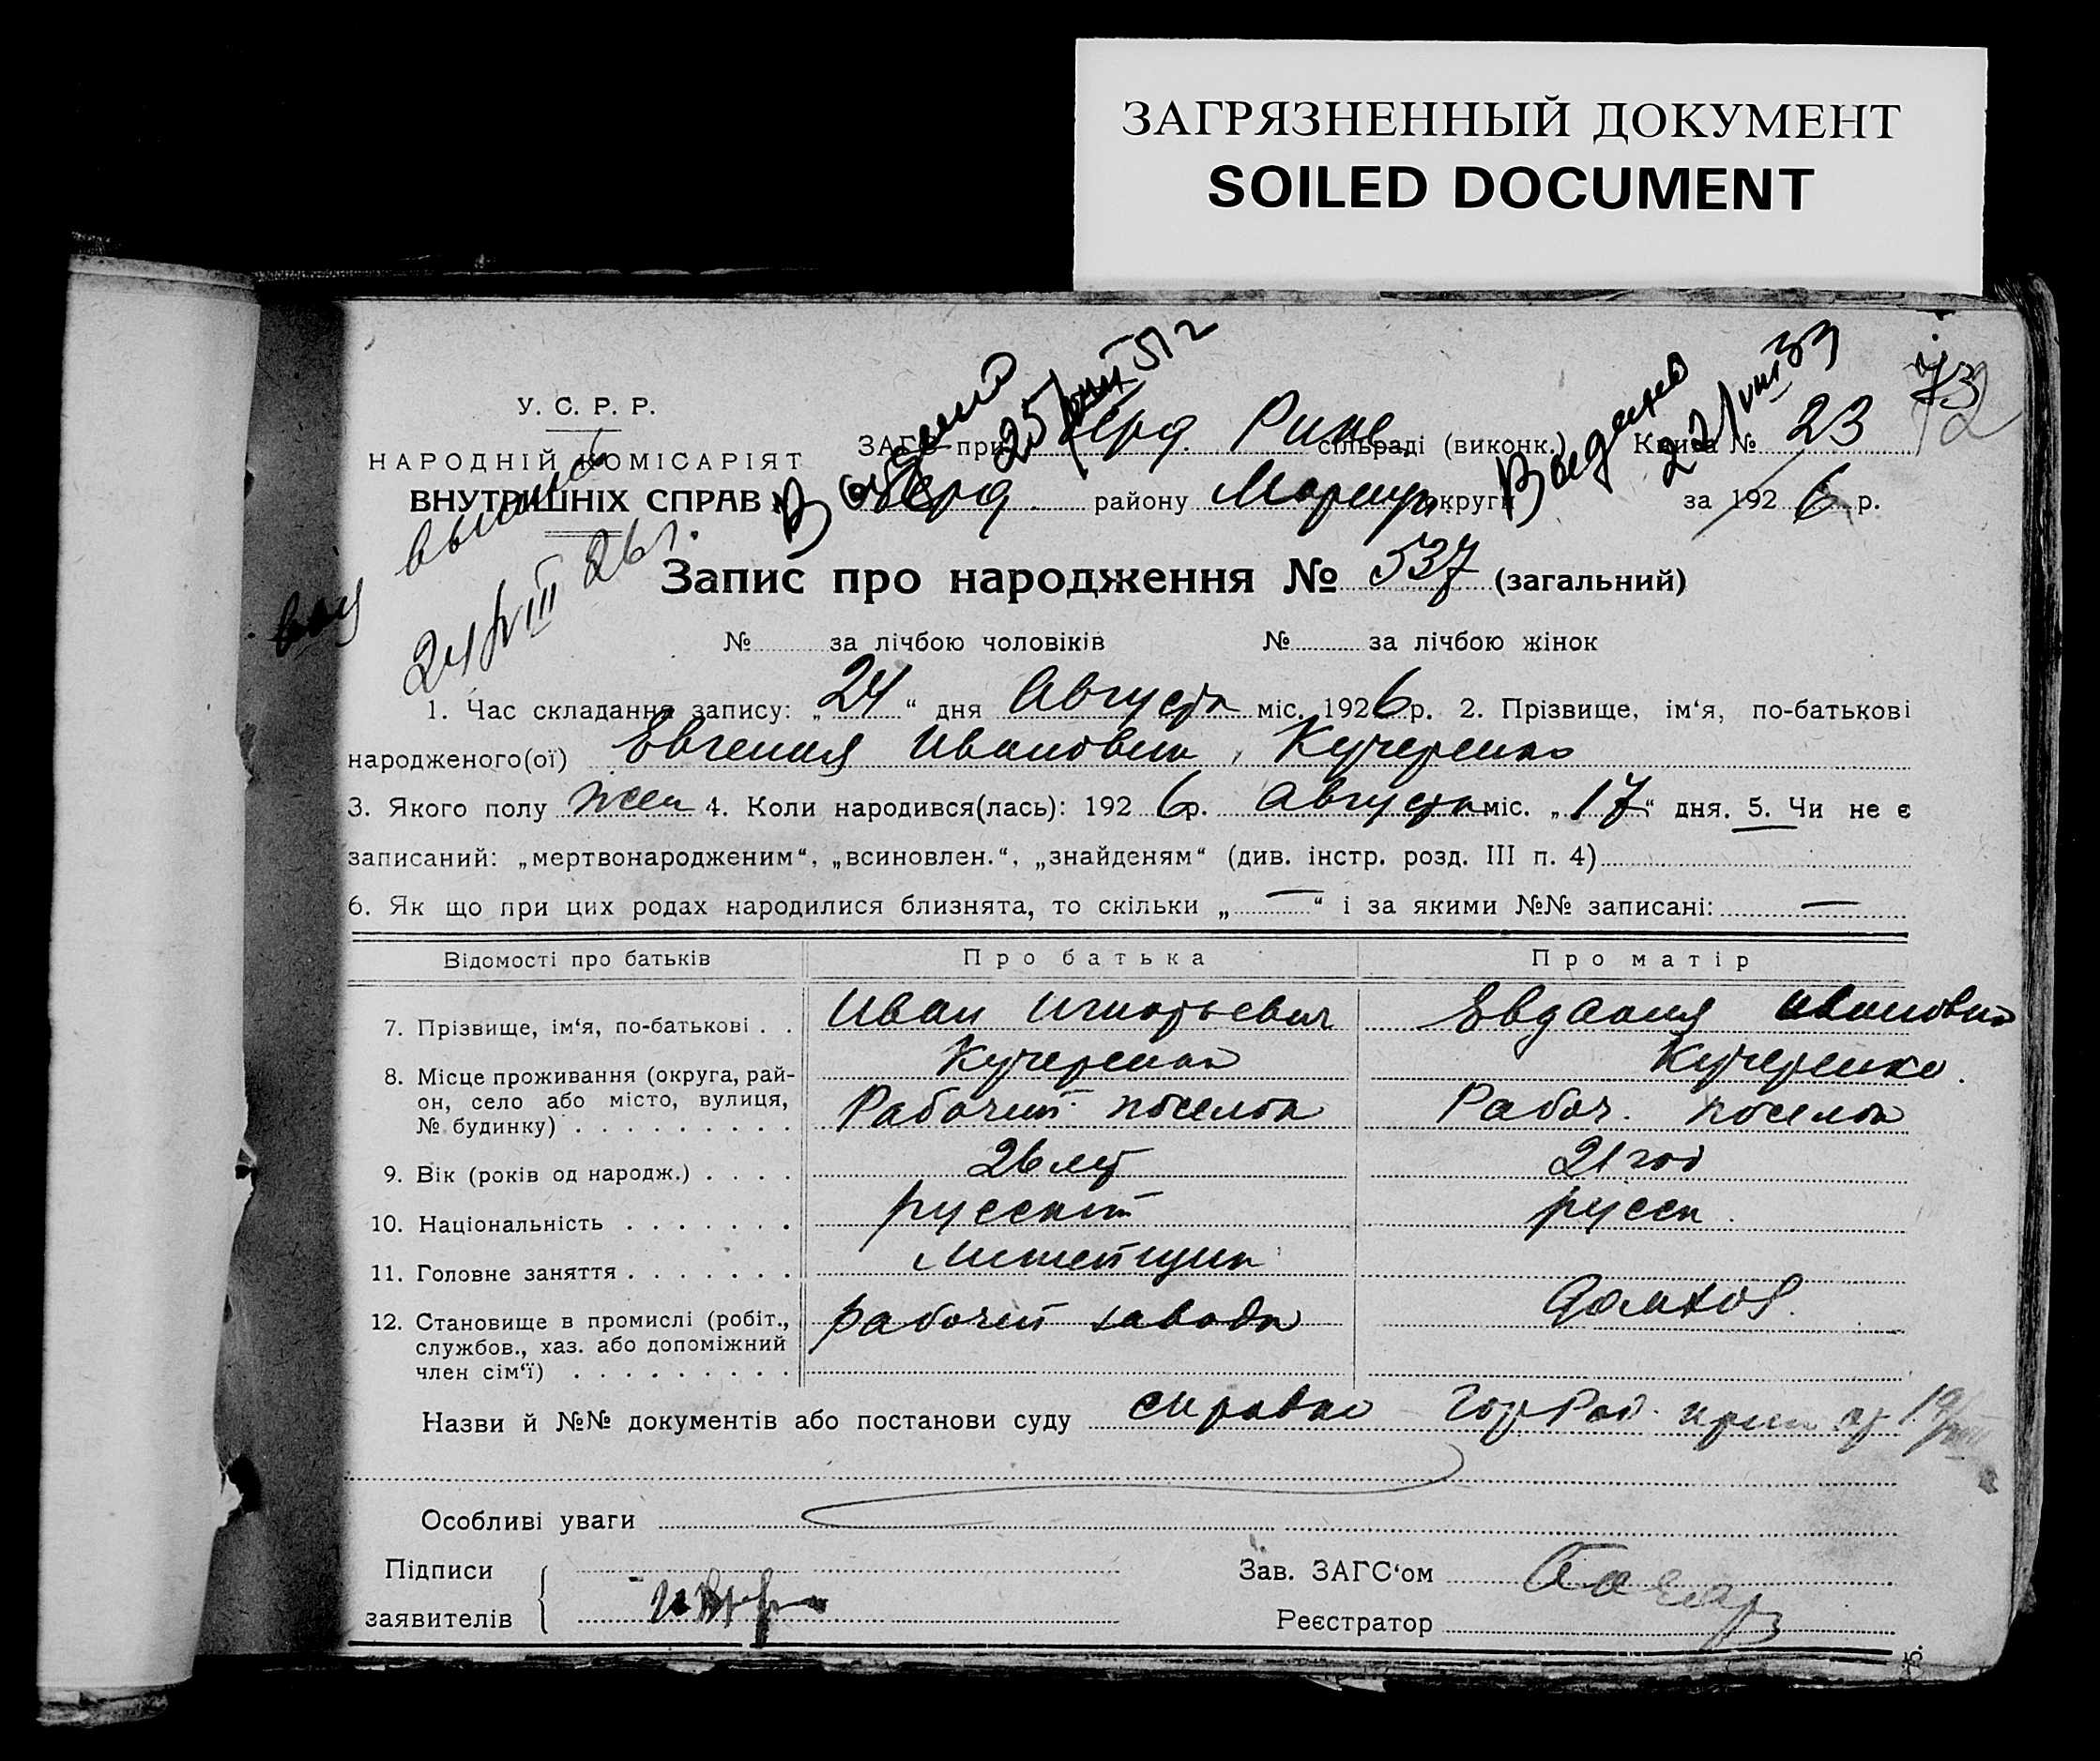 ЗАГРЯЗНЕННЫЙ ДОКУМЕНТ
SOILED DOCUMENT
73
72
У. С. Р. Р.
НАРОДНІЙ КОМІСАРІЯТ
ВНУТРІШНІХ СПРАВ
24/VIII 26 г.
25/VIII 51 г
Выдано
22/VIII 33
ЗАГС при Берд. Рике сільраді (виконк.) Книга № 23
Берд. району Мариуп. округи за 1926 р.
Запис про народження № 537 (загальний)
№ за лічбою чоловіків № за лічбою жінок
1. Час складання запису: „24“ дня Августа міс. 1926 р. 2. Прізвище, ім‘я, по-батькові
народженого(ої) Евгения Ивановна, Кучеренко
3. Якого полу жен 4. Коли народився(лась): 1926 р. Августа міс. „17“ дня. 5. Чи не є
записаний: „мертвонародженим“, „всиновлен.“, „знайденям“ (див. інстр. розд. III п. 4)
6. Як що при цих родах народилися близнята, то скільки „—“ і за якими №№ записані: —
Відомості про батьків Про батька Про матір
7. Прізвище, ім‘я, по-батькові . . Иван Игнатьевич Евдокия Ивановна
Кучеренко Кучеренко
8. Місце проживання (округа, рай-
он, село або місто, вулиця, Рабочий поселок Рабоч. поселок
№ будинку)
9. Вік (років од народж.) 26 лет 21 год
10. Національність русский русск.
11. Головне заняття Литейщик
12. Становище в промислі (робіт., рабочий завода домхоз.
службов., хаз. або допоміжний
член сім‘ї)
Назви й №№ документів або постанови суду справка 19/VIII
Особливі уваги
Підписи Зав. ЗАГС‘ом
заявителів Реєстратор